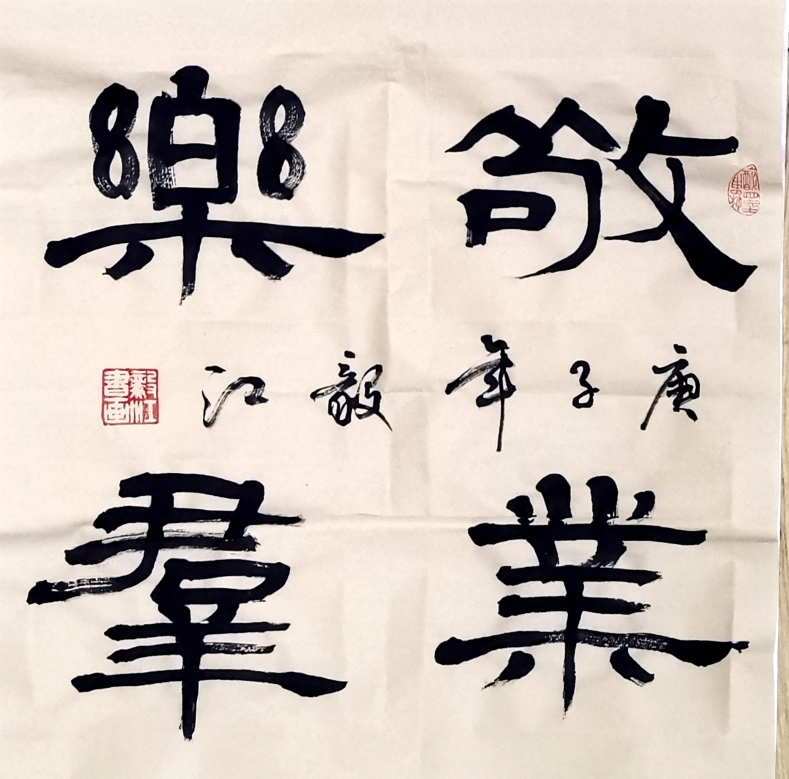 敬業
樂羣
庚子年毅江
毅江書画